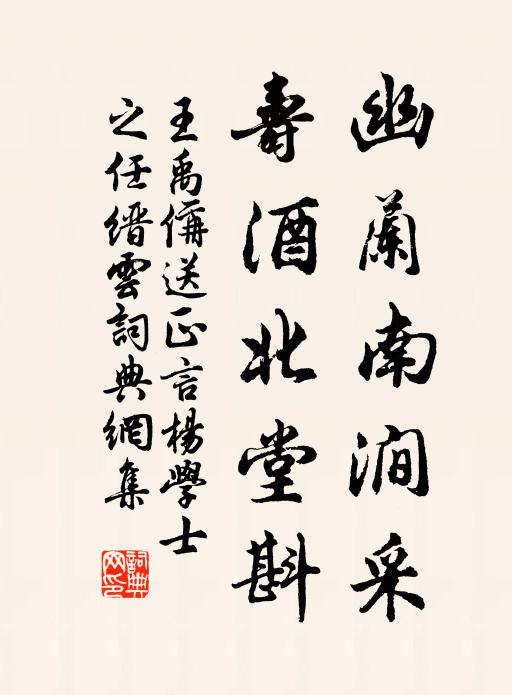 幽蘭南澗采
壽酒北堂斟
王禹偁送正言楊學士
之任縉雲詞典網集
詞典网印